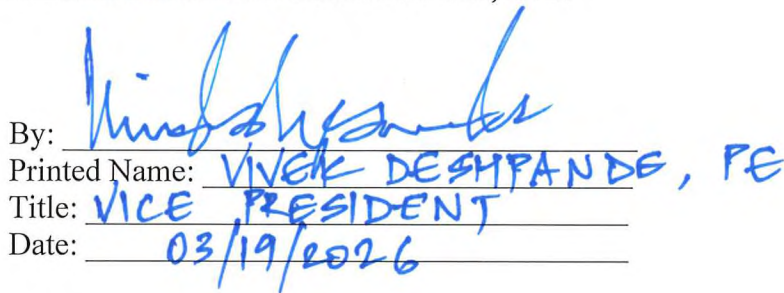 By:
Printed Name: VIVEK DESHPANDE, PE
Title: VICE PRESIDENT
Date: 03/19/2026